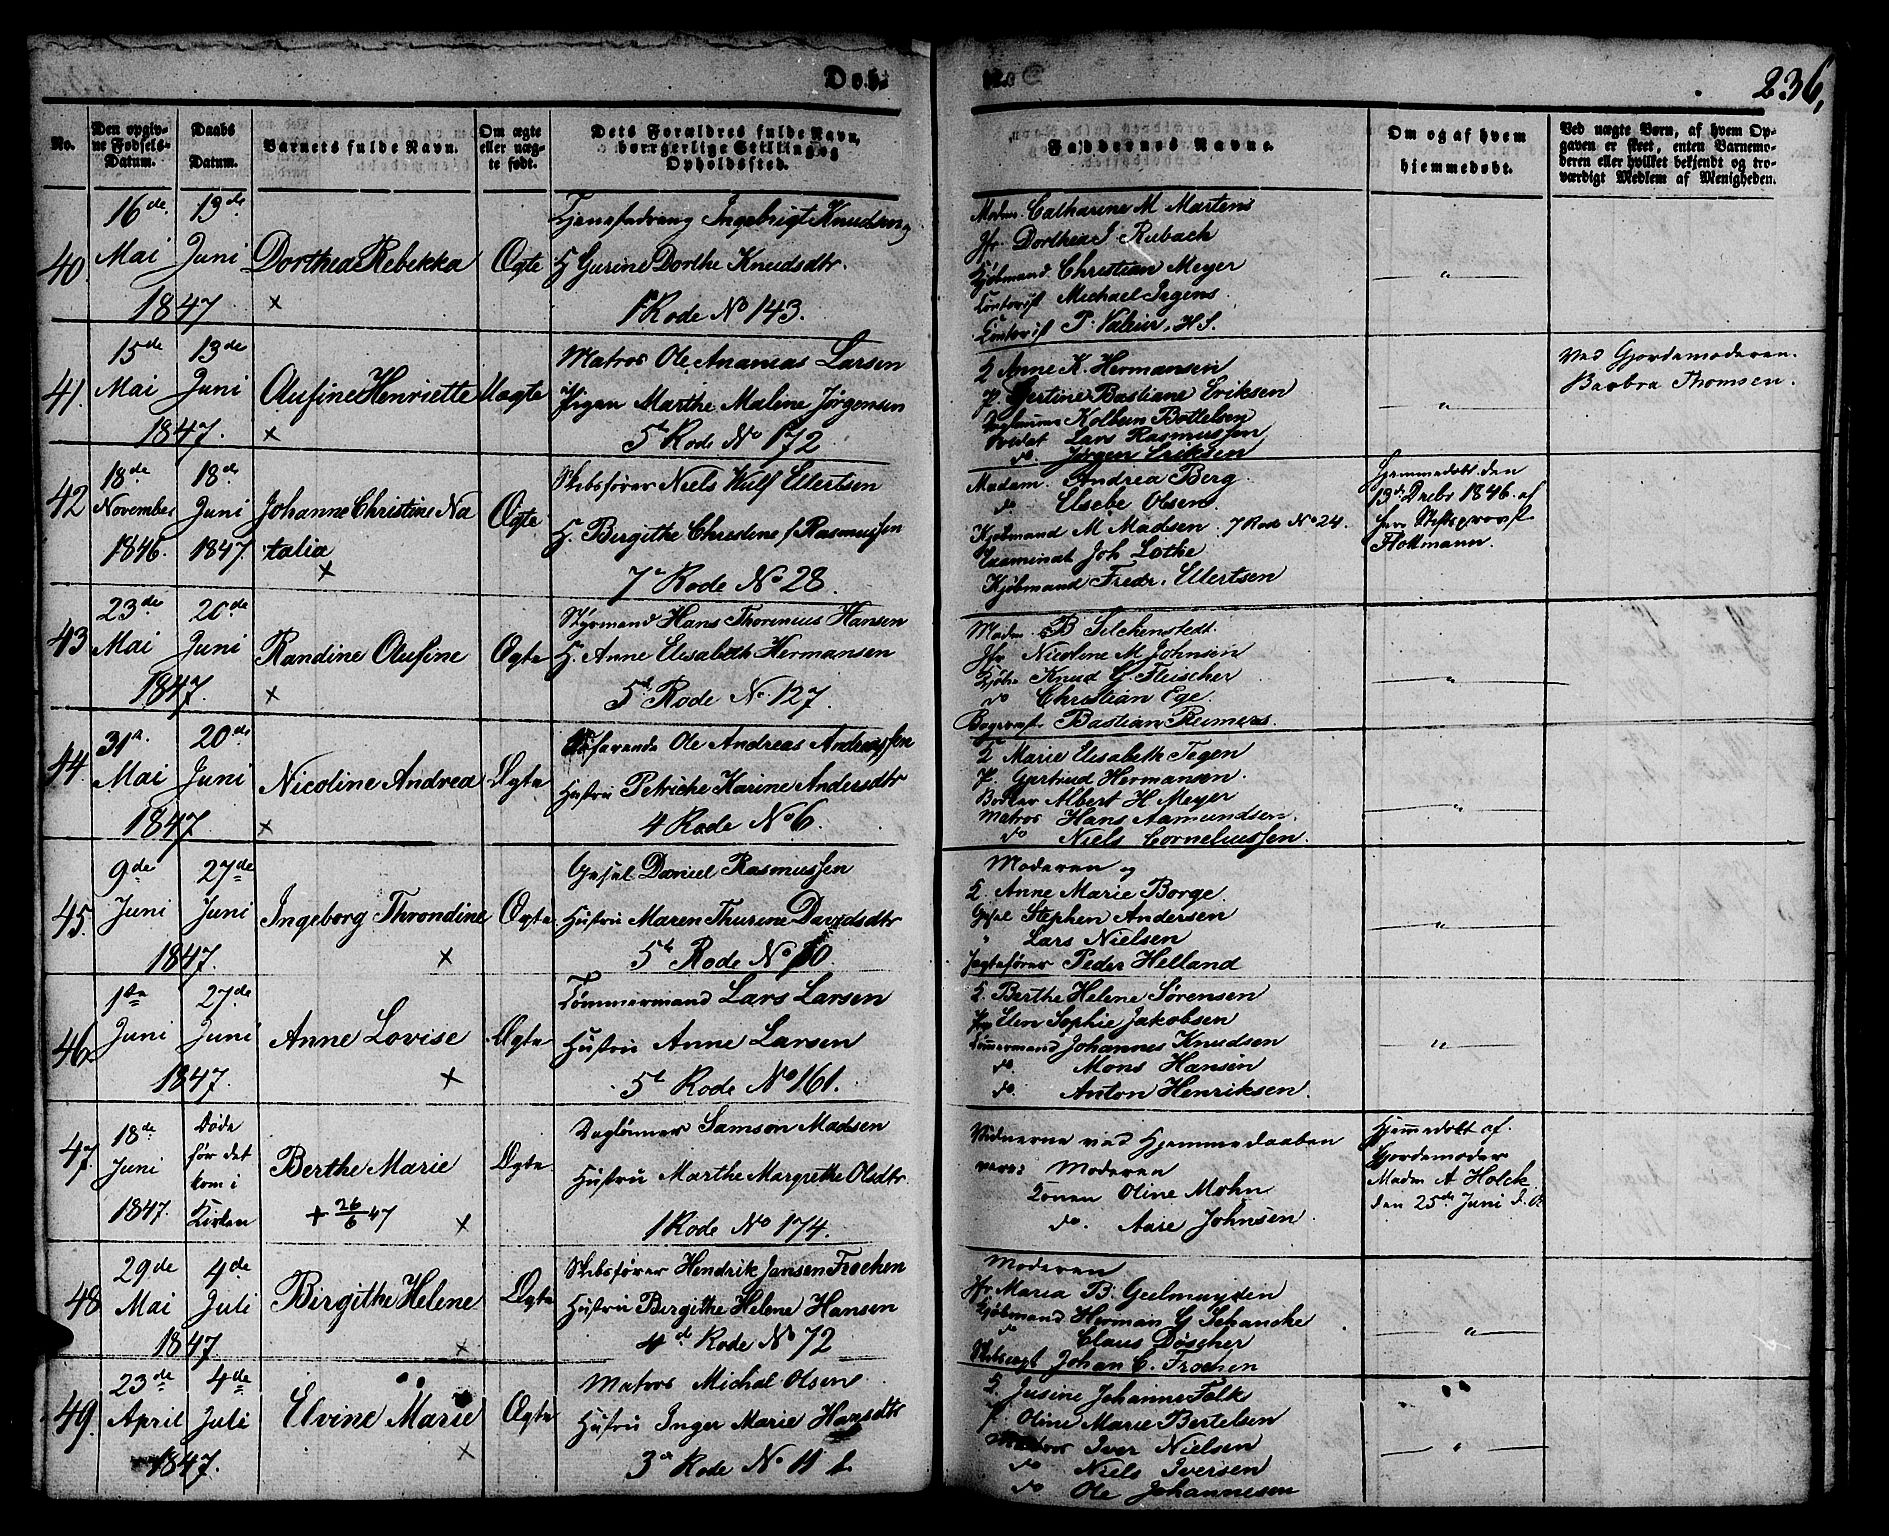 Døb.
236,
No.
Den opgivne Fødsels-Datum.
Daabs Datum.
Barnets fulde Navn.
Om ægte eller uægte født.
Dets Forældres fulde Navn, borgerlige Stilling og Opholdssted.
Faddernes Navne.
Om og af hvem hjemmedøbt.
Ved uægte Børn, af hvem Opgaven er skeet, enten Barnemoderen eller hvilket bekjendt og troværdigt Medlem af Menigheden.
40.
16de Mai 1847
13de Juni
Dorthea Rebekka
×
Ægte
Ingebrigt Knudsen
H Gurine Dorthe Knudsdtr.
1 Rode No 143.
Madm. Catharine M Martens
Jfr Dorthea J Rubach
Kjøbmand Christian Meyer
Contorist Michael Irgens
Contorist P. Valeur, H.S.
"
41.
15de Mai 1847.
13de Juni
Olufine Henriette
×
Uægte
Matros Ole Ananias Larsen
Pigen Marthe Malene Jørgensen
5t Rode No 172
K Anne K. Hermansen
P. Gjertine Bastiane Eriksen
Kolben Bottelsen
Soldat Lars Rasmussen
do Jørgen Eriksen
"
Ved Gjordemoderen
Barbra Thomsen.
42
18de November 1846.
18de Juni 1847
Johanne Christine Na
talia
×
Ægte
Skibsfører Niels Wulf Ellertsen
H. Birgithe Christine f Rasmussen
7e Rode No 28.
Madam Andrea Berg
do Elsebe Olsen
Kjøbmand M Madsen. 7 Rode No 24.
Examinat Joh Lothe
Kjøbmand Fredr. Ellertsen
Hjemmedøbt den
13de Decbr 1846. af
Herr Stiftsprovst
Flottmann.
43
23de Mai 1847.
20de Juni
Randine Olufine
×
Ægte
Styrmand Hans Thorenius Hansen
H. Anne Elisabeth Hermansen
5t Rode No 127.
Madm. B Silchenstedt
Jfr Nicoline M Johnsen
Kjøbm Knud G Fleischer
do Christian Ege
Bastian Reimers.
"
44
31te Mai 1847
20de Juni
Nicoline Andrea
×
Ægte
Søfarende Ole Andreas Andreassen
Hustru Petriche Karine Andersdtr
4 Rode No 6.
K Marie Elisabeth Tegen
P. Gjertrud Hermansen
Bødker Albert H Meyer
Matros Hans Aamundsen.
do Niels Corneliussen.
"
45.
9de Juni 1847.
27de Juni
Ingeborg Throndine
×
Ægte
Gesel Daniel Rasmussen
Hustru Maren Thurine Davidsdtr
5te Rode No 10
Moderen og
K. Anne Marie Borge
Gesel Stephen Andersen
" Lars Nielsen
Jagtefører Peder Helland
"
46
1ste Juni 1847.
27de Juni
Anne Lovise
×
Ægte
Tømmermand Lars Larsen
Hustru Anne Larsen
5t Rode No 161.
K. Berthe Helene Sørensen
Elen Sophie Jakobsen
Tømmermand Johannes Knudsen
do. Mons Hansen
do. Anton Henriksen.
"
47.
18de Juni 1847.
Døde
før det
kom i
Kirken
Berthe Marie
+ 26/6 47
×
Ægte
Daglønner Samson Madsen
Hustru Marthe Margrethe Olsdtr
1 Rode No 174.
Vidnerne ved Hjemmedaaben
vare: Moderen
Konen Oline Mohn
do. Aase Johnsen
Hjemmedøbt af.
Gjordemoder
Madm A Holck
den 25de Juni d. A
48
29de Mai 1847
4de Juli
Birgithe Helene
×
Ægte
Skibsfører Hendrik Jansen Frochen
Hustru Birgithe Helene Hansen
4de Rode No 72
Moderen
Jfr Maria B. Geelmuyden
Kjøbmand Herman G Schancke
do Claus Døscher
Johan C. Frochen
"
49.
23de April 1847.
4de Juli
Elvine Marie
×
Ægte
Matros Michal Olsen
Hustru Inger Marie Hansdtr
3e Rode No 11
K. Jusine Johanne Falk
P. Oline Marie Bertelsen
Matros Iver Nielsen
do Niels Iversen
do Ole Johannesen
"